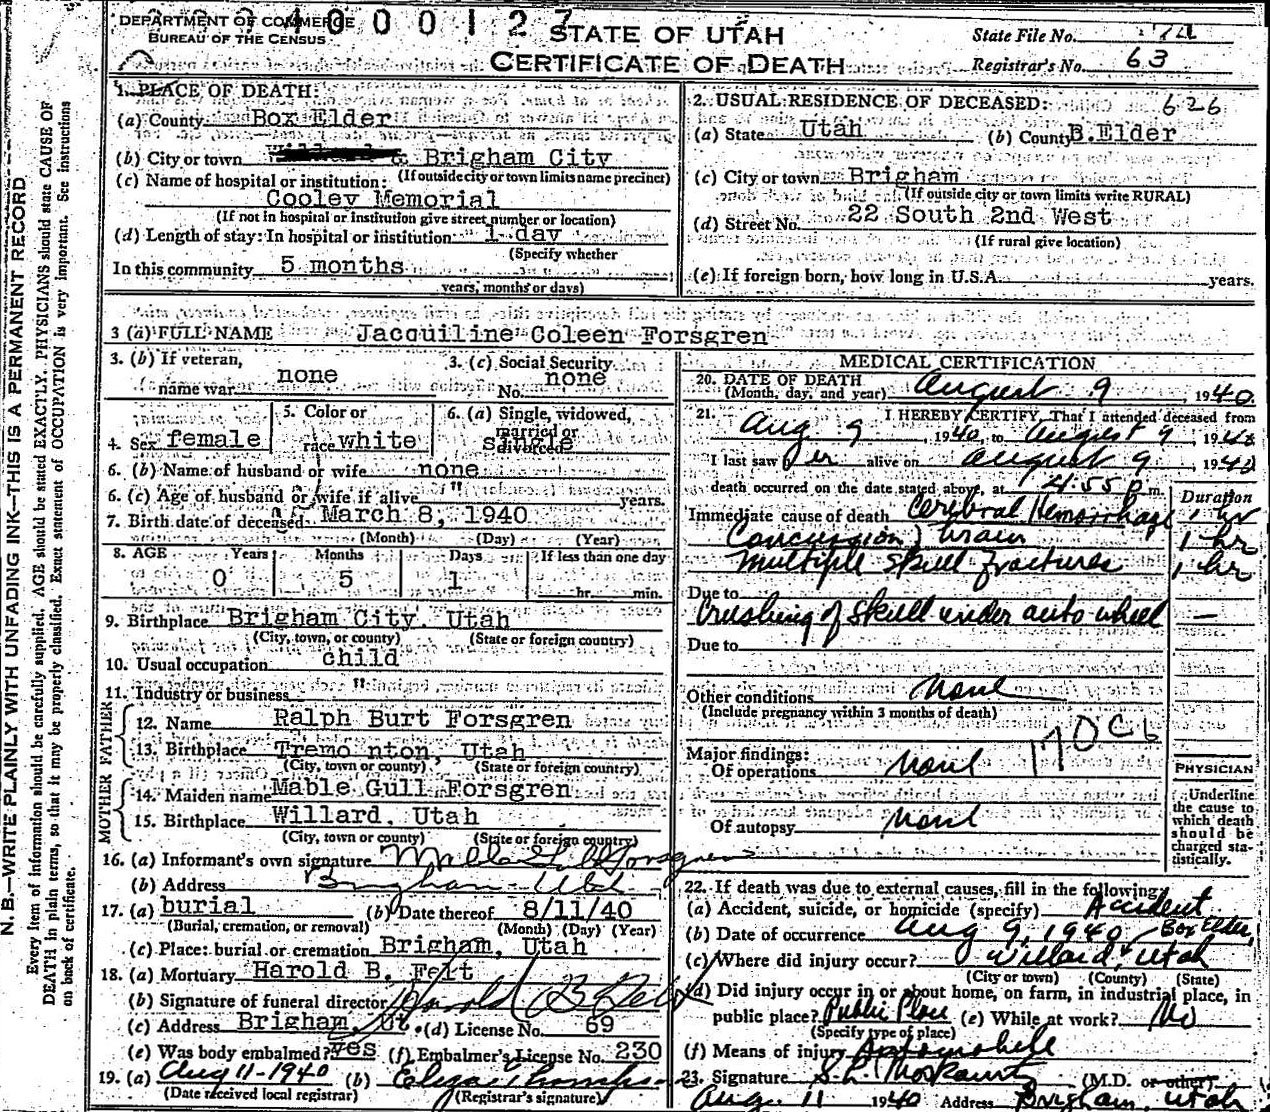 DEPARTMENT OF COMMERCE
BUREAU OF THE CENSUS
400127
STATE OF UTAH
CERTIFICATE OF DEATH
State File No. 74
Registrar's No. 63
N. B.—WRITE PLAINLY WITH UNFADING INK—THIS IS A PERMANENT RECORD
Every item of information should be carefully supplied. AGE should be stated EXACTLY. PHYSICIANS should state CAUSE OF
DEATH in plain terms, so that it may be properly classified. Exact statement of OCCUPATION is very important. See instructions
on back of certificate.
1. PLACE OF DEATH:
(a) County Box Elder
(b) City or town Brigham City
(If outside city or town limits name precinct)
(c) Name of hospital or institution:
Cooley Memorial
(If not in hospital or institution give street number or location)
(d) Length of stay: In hospital or institution 1 day
(Specify whether
In this community 5 months
years, months or days)
2. USUAL RESIDENCE OF DECEASED: 626
(a) State Utah (b) County B.Elder
(c) City or town Brigham
(If outside city or town limits write RURAL)
(d) Street No. 22 South 2nd West
(If rural give location)
(e) If foreign born, how long in U.S.A. years.
3 (a) FULL NAME Jacquiline Coleen Forsgren
3. (b) If veteran, name war none
3. (c) Social Security No. none
4. Sex female
5. Color or race white
6. (a) Single, widowed, married or divorced single
6. (b) Name of husband or wife none
6. (c) Age of husband or wife if alive " years.
7. Birth date of deceased March 8, 1940
(Month) (Day) (Year)
8. AGE Years Months Days If less than one day
0 5 1 hr. min.
9. Birthplace Brigham City, Utah
(City, town, or county) (State or foreign country)
10. Usual occupation child
11. Industry or business "
FATHER
12. Name Ralph Burt Forsgren
13. Birthplace Tremo nton, Utah
(City, town, or county) (State or foreign country)
MOTHER
14. Maiden name Mable Gull Forsgren
15. Birthplace Willard, Utah
(City, town or county) (State or foreign country)
16. (a) Informant's own signature Forsgren
(b) Address Brigham Utah
17. (a) burial (b) Date thereof 8/11/40
(Burial, cremation, or removal) (Month) (Day) (Year)
(c) Place: burial or cremation Brigham, Utah
18. (a) Mortuary Harold B. Felt
(b) Signature of funeral director Harold B Felt
(c) Address Brigham, Ut. (d) License No. 69
(e) Was body embalmed? yes (f) Embalmer's License No. 230
19. (a) Aug 11-1940 (b)
(Date received local registrar) (Registrar's signature)
MEDICAL CERTIFICATION
20. DATE OF DEATH August 9, 1940.
(Month, day, and year)
21. I HEREBY CERTIFY, That I attended deceased from
Aug 9, 1940, to August 9, 1940
I last saw her alive on August 9, 1940
death occurred on the date stated above, at 4:55 P m.
Duration
Immediate cause of death Cerebral Hemorrhage 1 hr
Concussion brain 1 hr
Multiple Skull fractures 1 hr
Due to
Crushing of skull under auto wheel —
Due to
Other conditions None
(Include pregnancy within 3 months of death)
170cb
Major findings:
Of operations None
Of autopsy None
PHYSICIAN
Underline
the cause to
which death
should be
charged sta-
tistically.
22. If death was due to external causes, fill in the following:
(a) Accident, suicide, or homicide (specify) Accident
(b) Date of occurrence Aug 9, 1940 Box Elder,
(c) Where did injury occur? Willard, Utah
(City or town) (County) (State)
(d) Did injury occur in or about home, on farm, in industrial place, in
public place? Public Place (e) While at work? No
(Specify type of place)
(f) Means of injury Automobile
23. Signature (M.D. or other)
Aug. 11 1940 Address Brigham, Utah